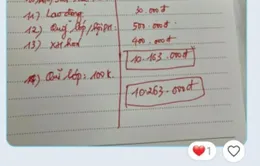 11) Lao động 50.000đ
12) Quỹ lớp 500.000đ
13) XH hoá 400.000đ
10.163.000đ
14) Quĩ lớp: 100k.
10.263.000đ
1